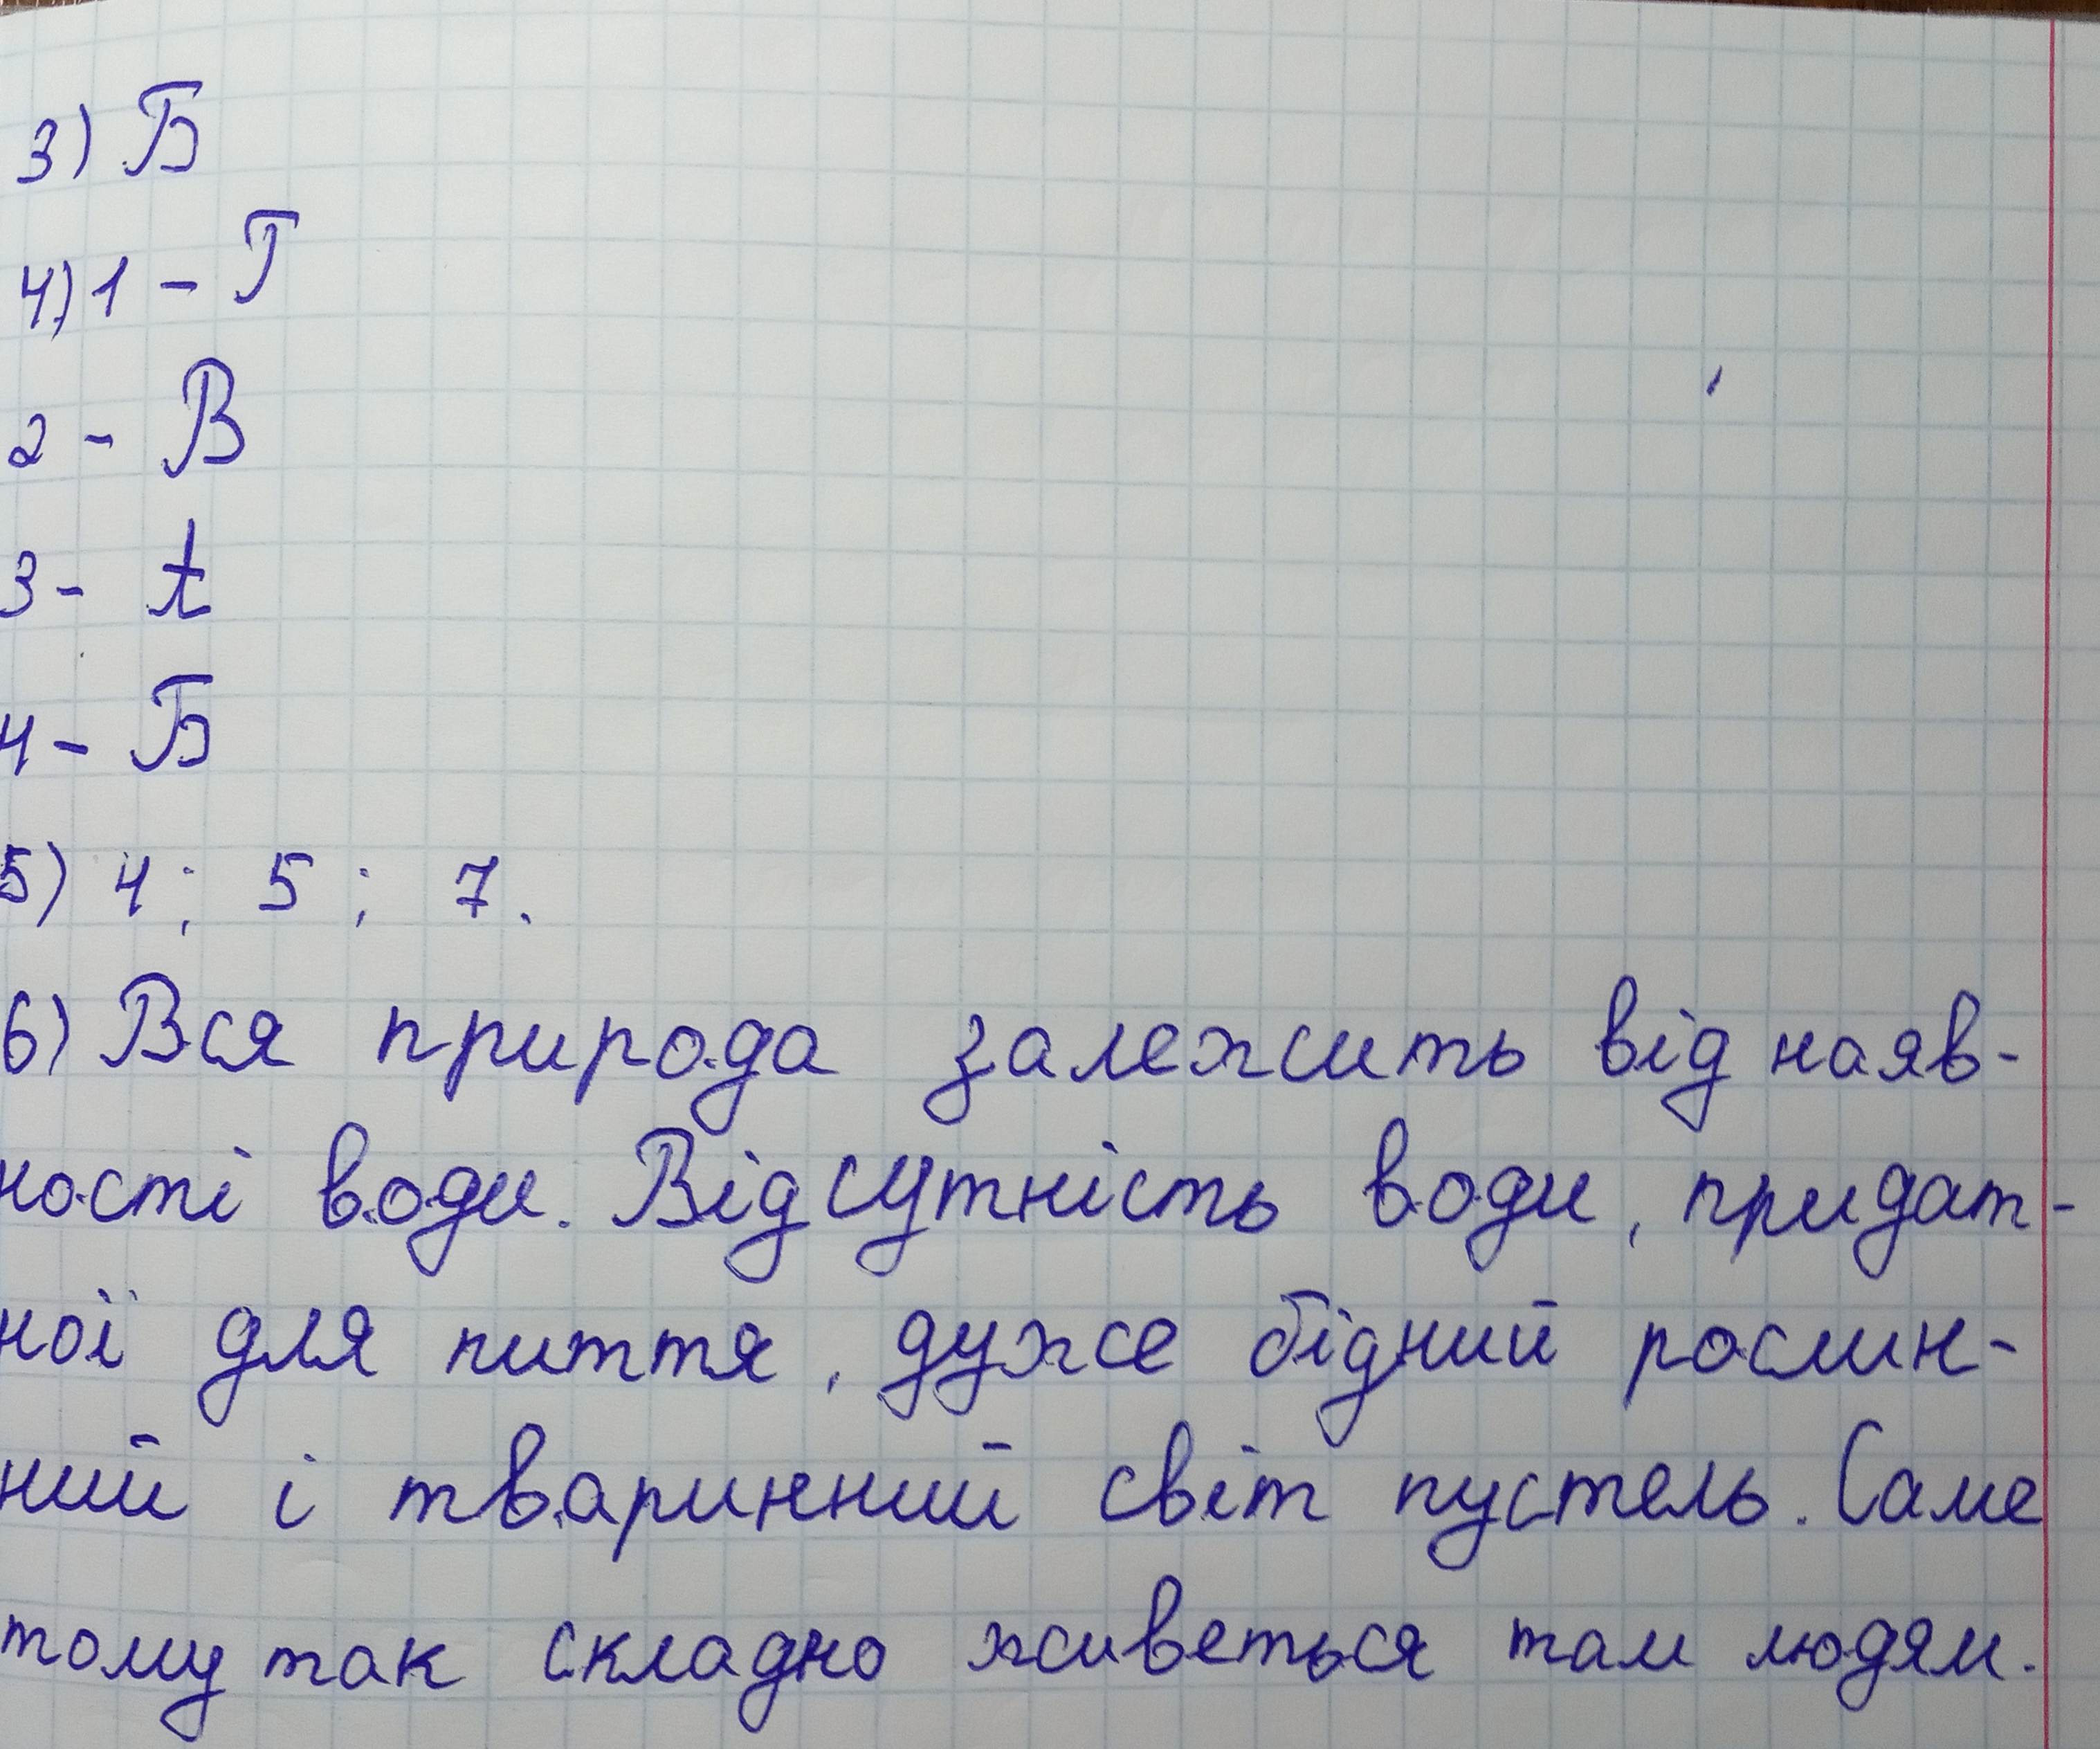 3) Б
4) 1 - Г
2 - В
3 - А
4 - Б
5) 4; 5; 7.
6) Вся природа залежить від наяв-
ності води. Відсутність води, придат-
ної для пиття, дуже бідний рослин-
ний і тваринний світ пустель. Саме
тому так складно живеться там людям.